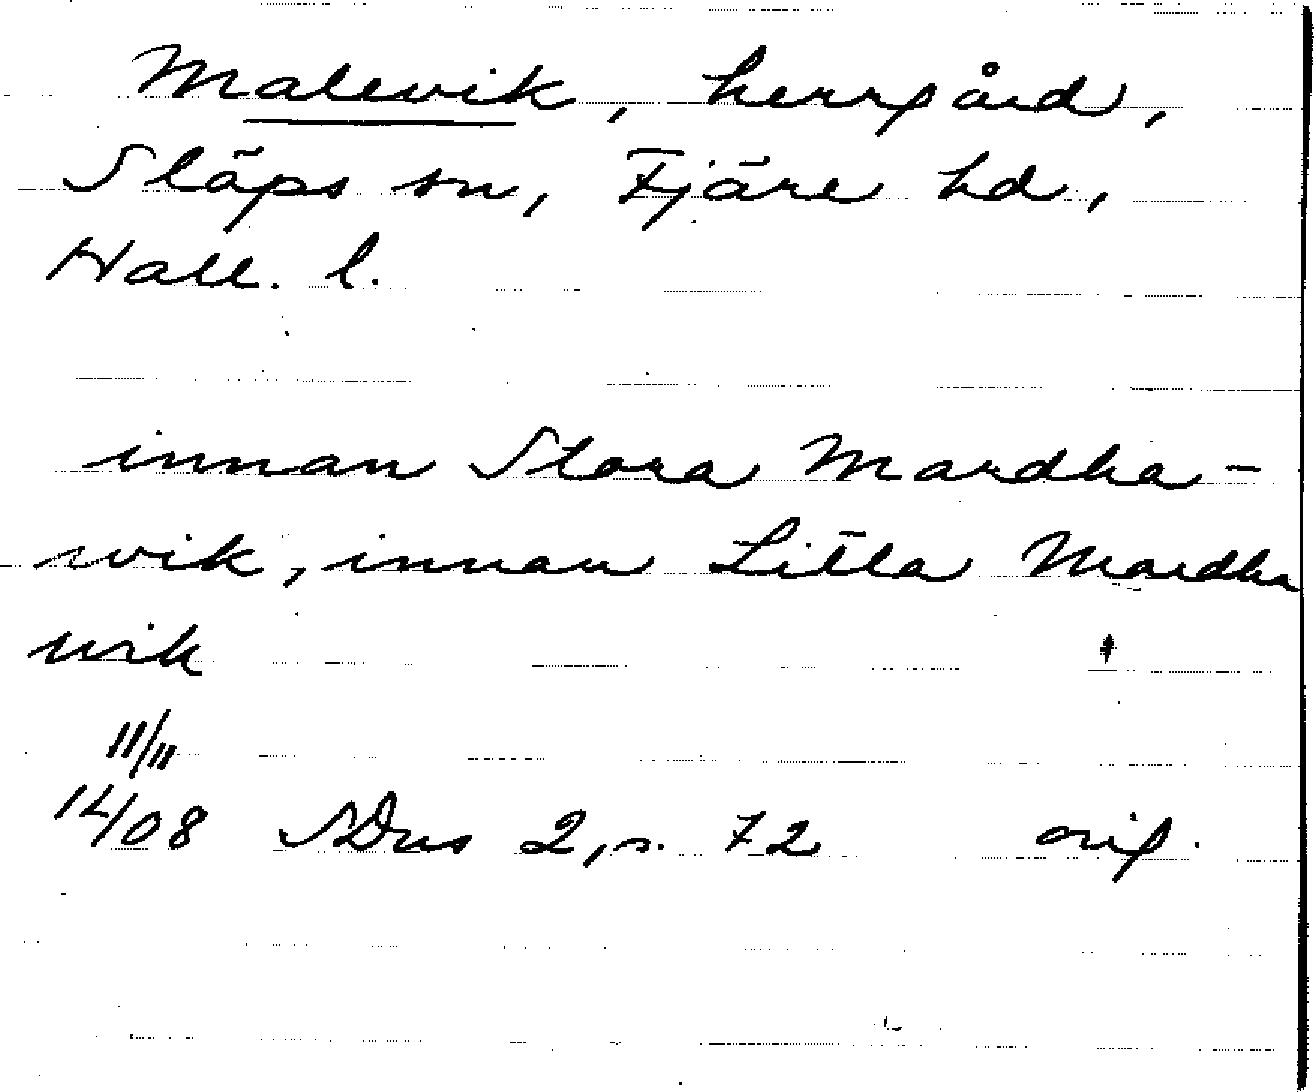 Malevik, herrgård,
Släps sn, Fjäre hd,
Hall. l.
innan Stora Mardha-
wik, innan Litla Mardha
wik
11/11
14/08 SDns 2, s. 72 orig.